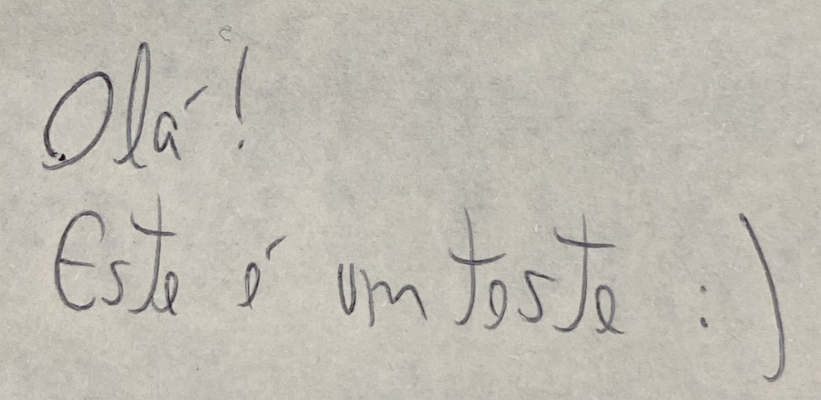 Olá!
Este é um teste :)